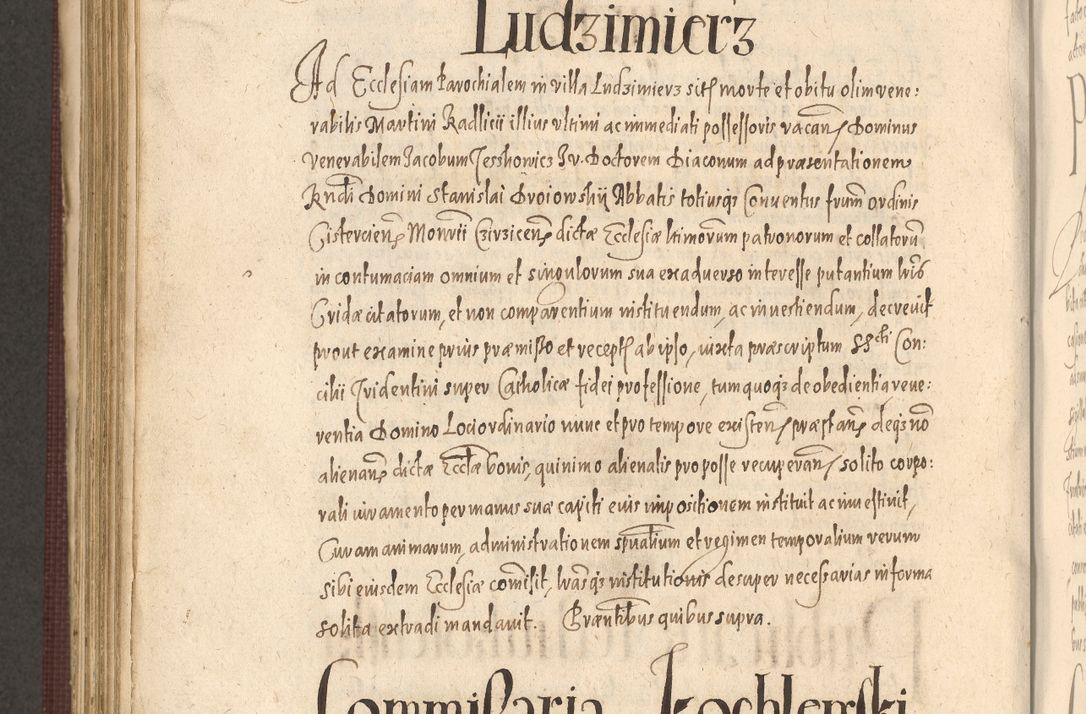 Ludzimierz
Ad Ecclesiam Parochialem in villa Ludzimierz sit morte et obitu olim vene:
rabilis Martini Radlicii illius ultimi ac immediati possessoris vacan Dominus
venerabilem Jacobum Jesshowicz J.v. Doctorem Diaconum ad praesentationem
Rndi Domini Stanislai Droiowshÿ Abbatis totiusqz Conventus frum ordinis
Cistercien Monrii Czirzicen dictæ Ecclesiæ ltimorum patronorum et collatorum
in contumaciam omnium et singulorum sua ex adverso interesse putantium lris
Cridæ citatorum, et non comparentium instituendum, ac investiendum, decrevit
prout examine prius præmisso et recept ab ipso, iuxta præscriptum SScti Con:
cilii Tridentini super Catholicæ fidei professione, tum quoqz de obedientia reve:
rentia Domino Loci ordinario nunc et pro tempore existen præstan deqz nō
alienan dictæ Ecclæ bonis, quinimo alienatis pro posse recuperan solito corpo:
rali iuramento per manus suæ capiti eius impositionem instituit ac investivit,
Curam animarum, administrationem spualium et regimen temporalium verum
sibi eiusdem Ecclesiæ comisit, lrasqz institutionis desuper necessarias in forma
solita extradi mandavit. Præntibus quibus supra.
Commissaria Kochlewski